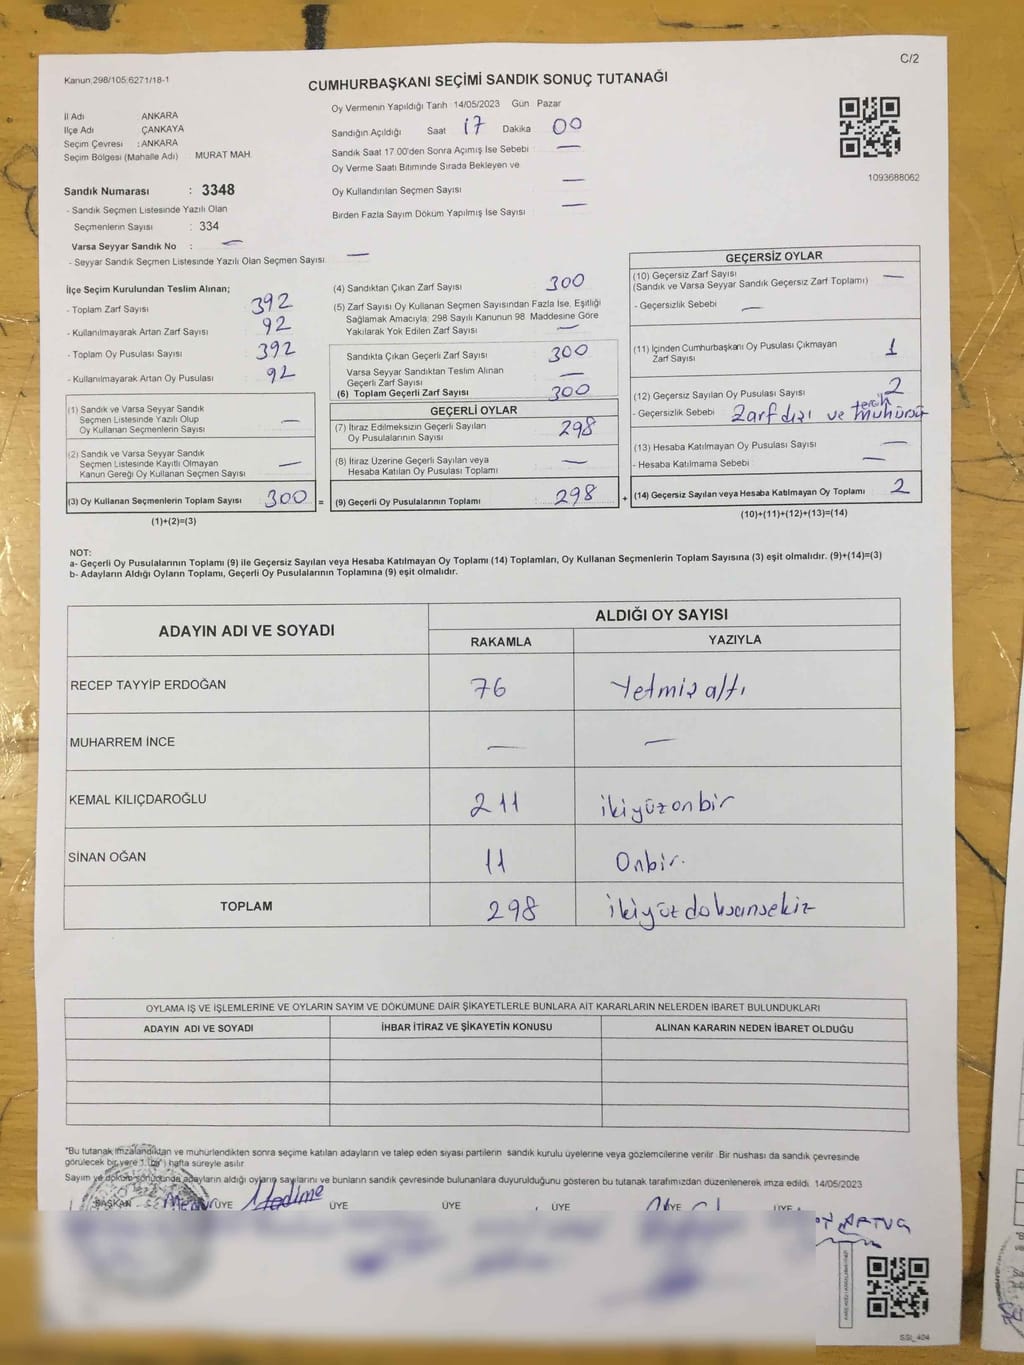 C/2
Kanun,298/105;6271/18-1
CUMHURBAŞKANI SEÇİMİ SANDIK SONUÇ TUTANAĞI
İl Adı ANKARA
İlçe Adı ÇANKAYA
Seçim Çevresi : ANKARA
Seçim Bölgesi (Mahalle Adı) MURAT MAH.
Oy Vermenin Yapıldığı Tarih 14/05/2023 Gün Pazar
Sandığın Açıldığı Saat 17 Dakika 00
Sandık Saat 17.00'den Sonra Açımış İse Sebebi —
Oy Verme Saati Bitiminde Sırada Bekleyen ve
Oy Kullandırılan Seçmen Sayısı —
Birden Fazla Sayım Döküm Yapılmış İse Sayısı —
1093688062
Sandık Numarası : 3348
- Sandık Seçmen Listesinde Yazılı Olan
Seçmenlerin Sayısı : 334
Varsa Seyyar Sandık No : —
- Seyyar Sandık Seçmen Listesinde Yazılı Olan Seçmen Sayısı —
İlçe Seçim Kurulundan Teslim Alınan;
- Toplam Zarf Sayısı 392
- Kullanılmayarak Artan Zarf Sayısı 92
- Toplam Oy Pusulası Sayısı 392
- Kullanılmayarak Artan Oy Pusulası 92
(1) Sandık ve Varsa Seyyar Sandık
Seçmen Listesinde Yazılı Olup
Oy Kullanan Seçmenlerin Sayısı —
(2) Sandık ve Varsa Seyyar Sandık
Seçmen Listesinde Kayıtlı Olmayan
Kanun Gereği Oy Kullanan Seçmen Sayısı —
(3) Oy Kullanan Seçmenlerin Toplam Sayısı 300 =
(1)+(2)=(3)
(4) Sandıktan Çıkan Zarf Sayısı 300
(5) Zarf Sayısı Oy Kullanan Seçmen Sayısından Fazla İse, Eşitliği
Sağlamak Amacıyla; 298 Sayılı Kanunun 98. Maddesine Göre
Yakılarak Yok Edilen Zarf Sayısı —
Sandıkta Çıkan Geçerli Zarf Sayısı 300
Varsa Seyyar Sandıktan Teslim Alınan
Geçerli Zarf Sayısı —
(6) Toplam Geçerli Zarf Sayısı 300
GEÇERLİ OYLAR
(7) İtiraz Edilmeksizin Geçerli Sayılan
Oy Pusulalarının Sayısı 298
(8) İtiraz Üzerine Geçerli Sayılan veya
Hesaba Katılan Oy Pusulası Toplamı —
(9) Geçerli Oy Pusulalarının Toplamı 298 +
GEÇERSİZ OYLAR
(10) Geçersiz Zarf Sayısı
(Sandık ve Varsa Seyyar Sandık Geçersiz Zarf Toplamı) —
- Geçersizlik Sebebi —
(11) İçinden Cumhurbaşkanı Oy Pusulası Çıkmayan
Zarf Sayısı 1
(12) Geçersiz Sayılan Oy Pusulası Sayısı 2
- Geçersizlik Sebebi Zarf dışı ve tercih mühürsüz
(13) Hesaba Katılmayan Oy Pusulası Sayısı —
- Hesaba Katılmama Sebebi —
(14) Geçersiz Sayılan veya Hesaba Katılmayan Oy Toplamı 2
(10)+(11)+(12)+(13)=(14)
NOT:
a- Geçerli Oy Pusulalarının Toplamı (9) ile Geçersiz Sayılan veya Hesaba Katılmayan Oy Toplamı (14) Toplamları, Oy Kullanan Seçmenlerin Toplam Sayısına (3) eşit olmalıdır. (9)+(14)=(3)
b- Adayların Aldığı Oyların Toplamı, Geçerli Oy Pusulalarının Toplamına (9) eşit olmalıdır.
ADAYIN ADI VE SOYADI
ALDIĞI OY SAYISI
RAKAMLA YAZIYLA
RECEP TAYYİP ERDOĞAN 76 Yetmiş altı
MUHARREM İNCE — —
KEMAL KILIÇDAROĞLU 211 ikiyüzonbir
SİNAN OĞAN 11 Onbir.
TOPLAM 298 ikiyüzdoksansekiz
OYLAMA İŞ VE İŞLEMLERİNE VE OYLARIN SAYIM VE DÖKÜMÜNE DAİR ŞİKAYETLERLE BUNLARA AİT KARARLARIN NELERDEN İBARET BULUNDUKLARI
ADAYIN ADI VE SOYADI İHBAR İTİRAZ VE ŞİKAYETİN KONUSU ALINAN KARARIN NEDEN İBARET OLDUĞU
"Bu tutanak imzalandıktan ve mühürlendikten sonra seçime katılan adayların ve talep eden siyasi partilerin sandık kurulu üyelerine veya gözlemcilerine verilir. Bir nushası da sandık çevresinde
görülecek bir yere 1 (bir) hafta süreyle asılır.
Sayım ve döküm sonucunda adayların aldığı oyların sayılarını ve bunların sandık çevresinde bulunanlara duyurulduğunu gösteren bu tutanak tarafımızdan düzenlenerek imza edildi. 14/05/2023
BAŞKAN ÜYE ÜYE ÜYE ÜYE ÜYE ÜYE
SSI_404